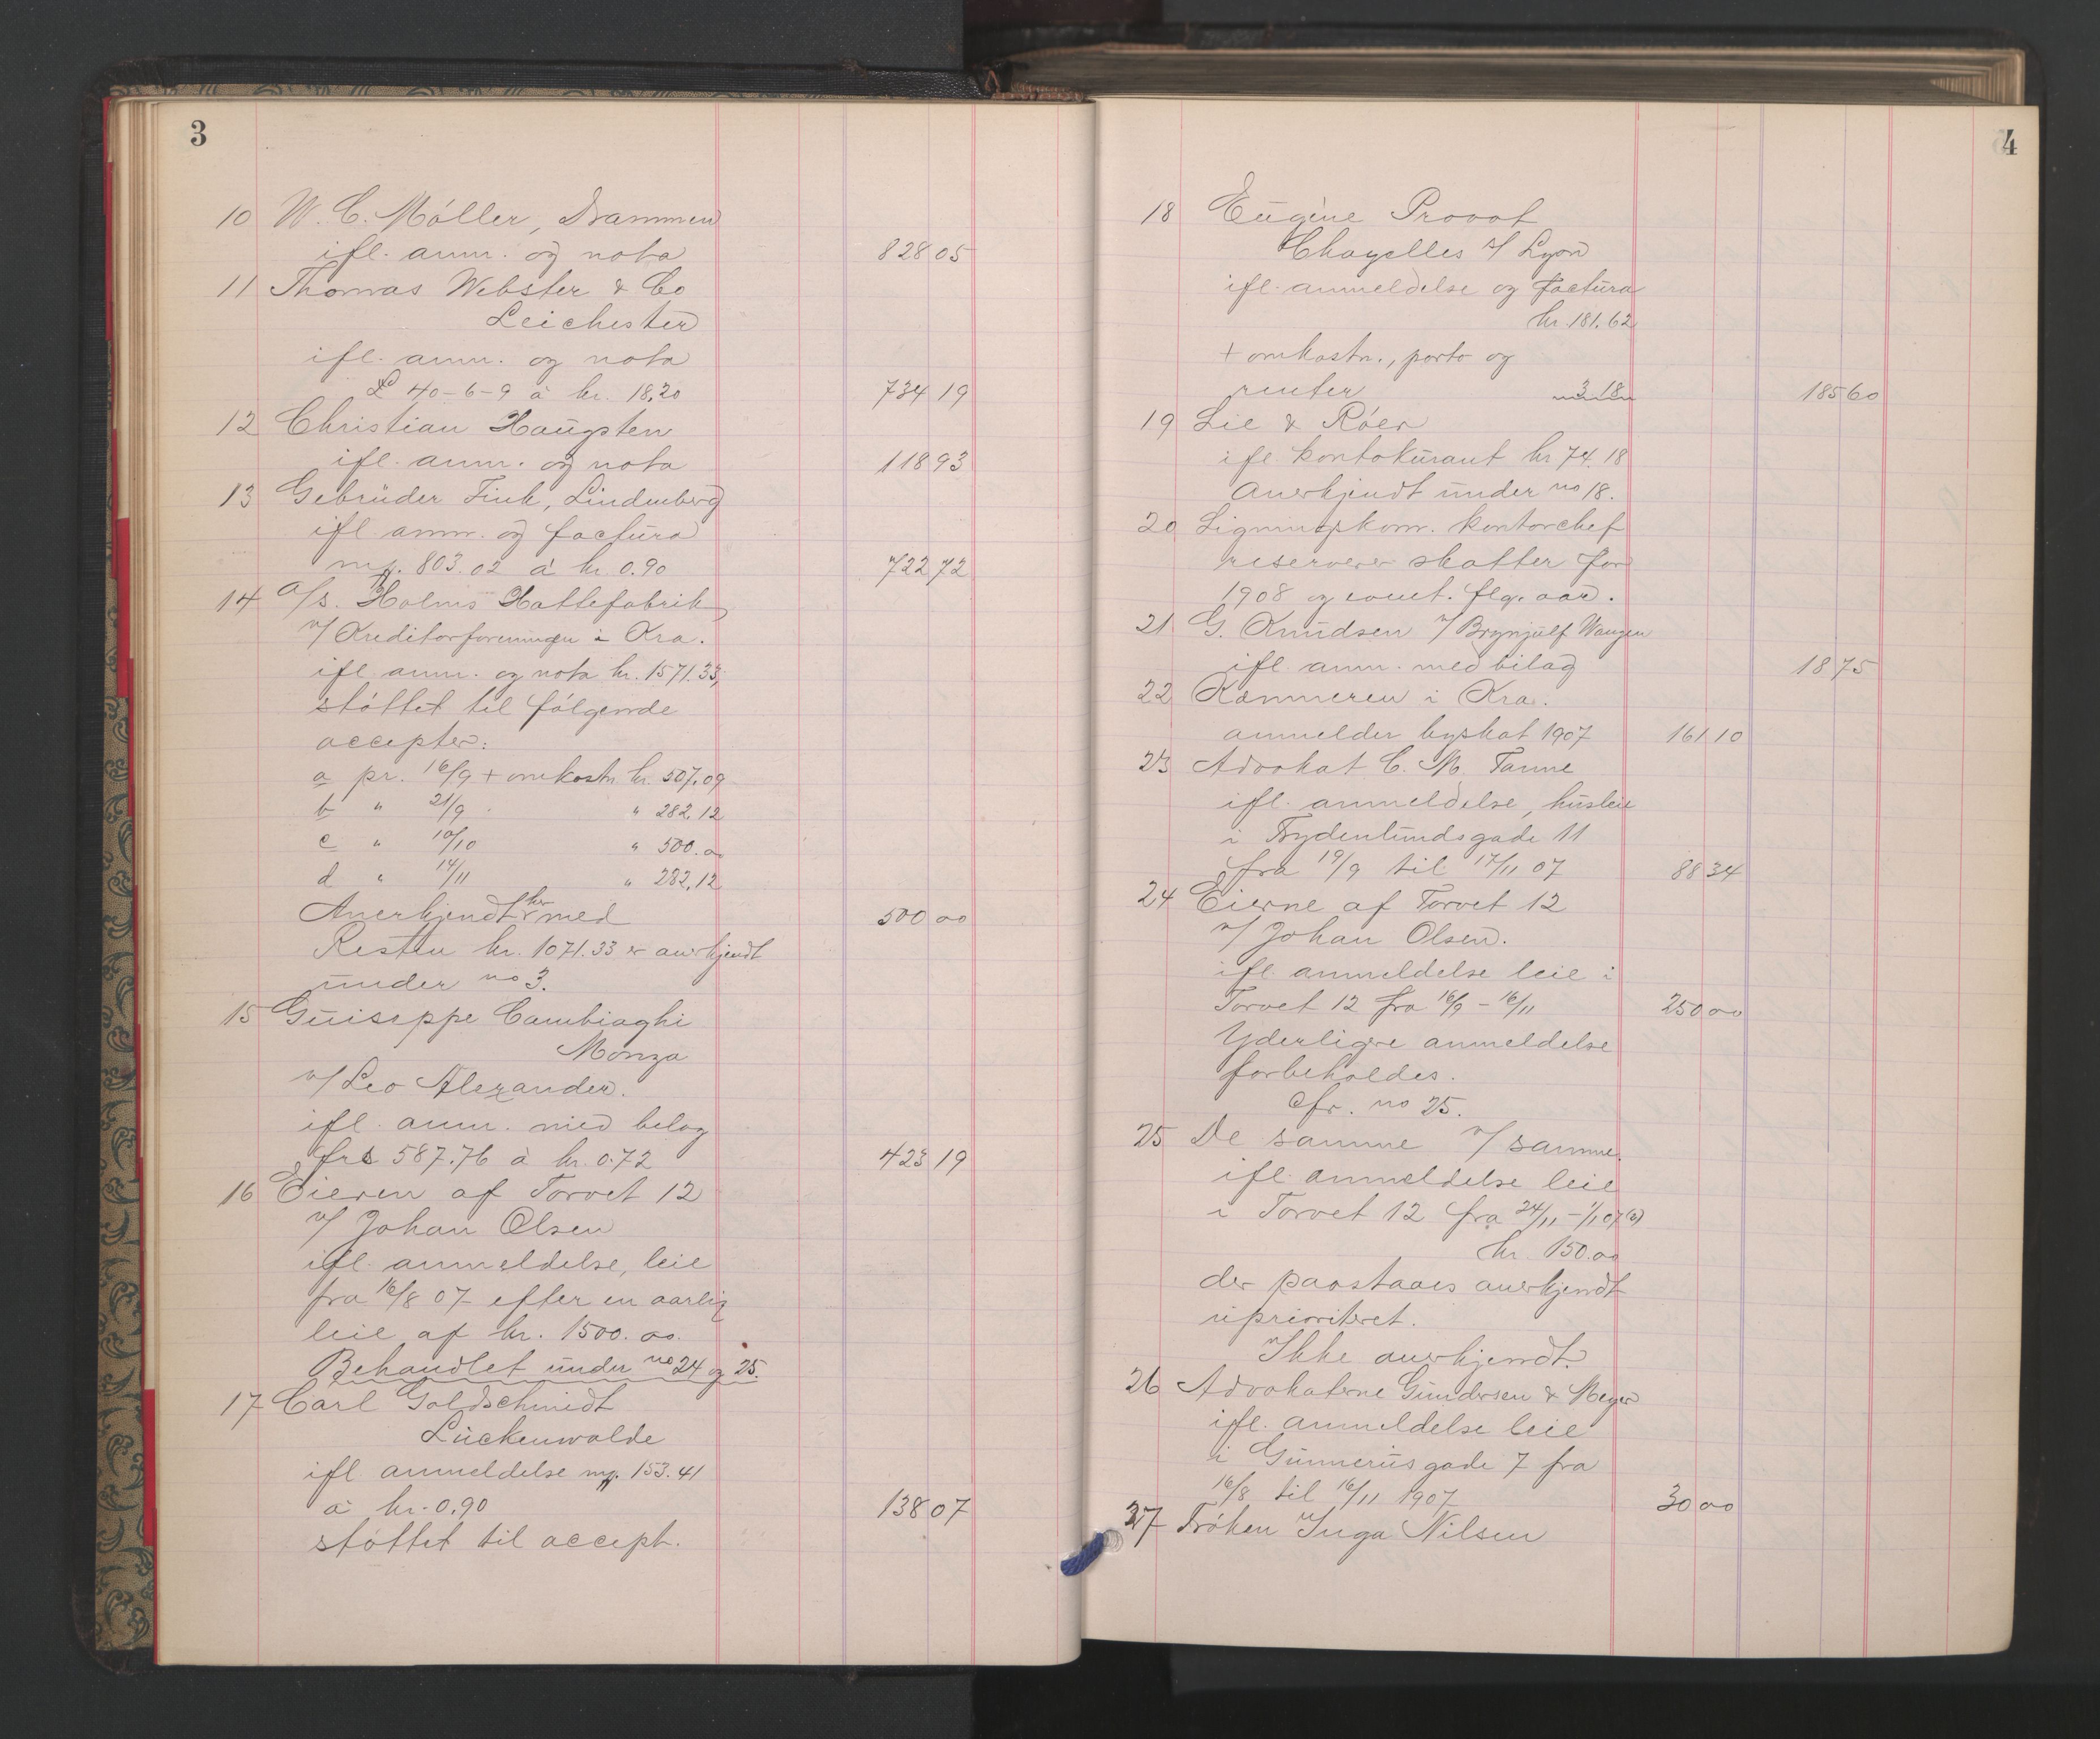 3
10 W. C. Möller, Drammen
ifl. anm. og nota 828 05
11 Thomas Webster & Co
Leichester
ifl. anm. og nota
£ 40-6-9 à kr. 18,20 734 19
12 Christian Haugsten
ifl. anm. og nota 118 93
13 Gebrüder Fink, Lindenberg
ifl. anm. og factura
mp. 803.02 à kr. 0.90 722 72
14 A/s. Holms Hattefabrik
v/ Kreditorforeningen i Kra.
ifl. anm. og nota kr. 1571.33,
støttet til følgende
accepter:
a pr. 16/9 + omkostn. kr. 507.09
b " 21/9 " 282.12
c " 10/10 " 500.00
d " 14/11 " 282.12
Anerkjendt her med 500 00
Resten kr. 1071.33 er anerkjendt
under no 3.
15 Guiseppe Cambiaghi
Monza
v/ Leo Alexander.
ifl. anm. med belag
frs 587.76 à kr. 0.72 423 19
16 Eieren af Torvet 12
v/ Johan Olsen
ifl. anmeldelse, leie
fra 16/8 07 efter en aarlig
leie af kr. 1500.00.
Behandlet under no 24 og 25.
17 Carl Goldschmidt
Luckenwalde
ifl. anmeldelse mp. 153.41
à kr. 0.90 138 07
støttet til accept.
4
18 Eugène Provot
Chagelles s/ Lyon
ifl. anmeldelse og factura
kr. 181.62
+ omkostn., porto og
renter 3.18 185 60
19 Lie & Röer
ifl. kontokurant kr 74.18
Anerkjendt under no 18.
20 Ligningskom. kontorchef
reserverer skatter for
1908 og event. flg. aar.
21 G. Knudsen v/ Brynjulf Wangen
ifl. anm. med bilag 18 75
22 Kæmneren i Kra.
anmelder byskat 1907 161 10
23 Advokat C. M. Tanne
ifl. anmeldelse, husleie
i Frydenlundsgade 11
fra 19/9 til 17/11 07 88 34
24 Eierne af Torvet 12
v/ Johan Olsen.
ifl. anmeldelse leie i
Torvet 12 fra 16/9 - 16/11 250 00
Yderligere anmeldelse
forbeholdes.
Cfr. no 25.
25 De samme v/ samme.
ifl. anmeldelse leie
i Torvet 12 fra 24/11 - 1/1 07
kr. 150.00
der paastaaes anerkjendt
uprioritert.
Ikke anerkjendt.
26 Advokaterne Gundersen & Meyer
ifl. anmeldelse leie
i Gunnerusgade 7 fra
16/8 til 16/11 1907 30 00
27 Frøken Inga Nilsen